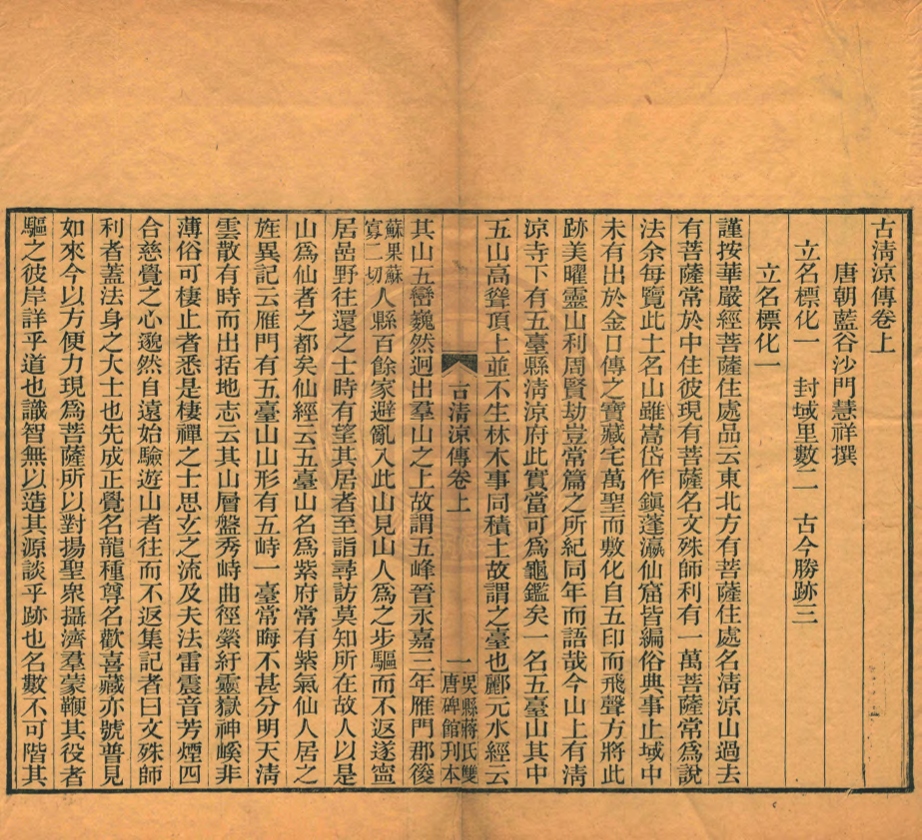 古清涼傳卷上
唐朝藍谷沙門慧祥撰
立名標化一　封域里數二　古今勝跡三
立名標化一
謹按華嚴經菩薩住處品云東北方有菩薩住處名清涼山過去
有菩薩常於中住彼現有菩薩名文殊師利有一萬菩薩常爲說
法余每覽此土名山雖嵩岱作鎮蓬瀛仙窟皆編俗典事止域中
未有出於金口傳之寶藏宅萬聖而敷化自五印而飛聲方將此
跡美曜靈山利周賢劫豈常篇之所紀同年而語哉今山上有清
涼寺下有五臺縣清涼府此實當可爲龜鑑矣一名五臺山其中
五山高聳頂上並不生林木事同積土故謂之臺也酈元水經云
古清涼傳卷上
一
吳縣蔣氏雙
唐碑館刊本
其山五巒巍然迥出羣山之上故謂五峰晉永嘉三年雁門郡筱
蘇果蘇
寡二切
人縣百餘家避亂入此山見山人爲之步驅而不返遂寧
居嵒野往還之士時有望其居者至詣尋訪莫知所在故人以是
山爲仙者之都矣仙經云五臺山名爲紫府常有紫氣仙人居之
旌異記云雁門有五臺山山形有五峙一臺常晦不甚分明天清
雲散有時而出括地志云其山層盤秀峙曲徑縈紆靈嶽神嵠非
薄俗可棲止者悉是棲禪之士思玄之流及夫法雷震音芳煙四
合慈覺之心邈然自遠始驗遊山者往而不返集記者曰文殊師
利者蓋法身之大士也先成正覺名龍種尊名歡喜藏亦號普見
如來今以方便力現爲菩薩所以對揚聖衆攝濟羣蒙鞭其役者
驅之彼岸詳乎道也識智無以造其源談乎跡也名數不可階其